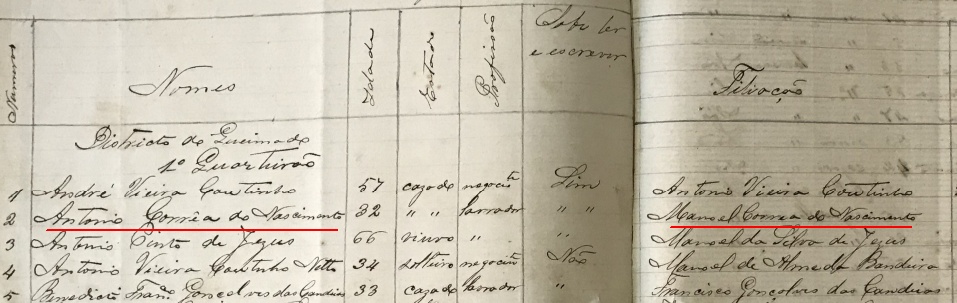 Numeros Nomes Idade Estado Profissão Sabe ler e escrever Filiação
Districto de Queimado
1º Quarteirão
1 André Vieira Coutinho 57 cazado negocite Sim Antonio Vieira Coutinho
2 Antonio Corrêa do Nascimento 32 " " lavrador " " Manoel Correa do Nascimento
3 Antonio Pinto de Jezus 66 viuvo " " Manoel da Silva de Jezus
4 Antonio Vieira Coutinho Netto 34 solteiro negocite Não Manoel de Almeda Bandeira
5 Benedicto Franco Gonçalves das Candeias 33 cazado lavrador " Francisco Gonçalves das Candeias